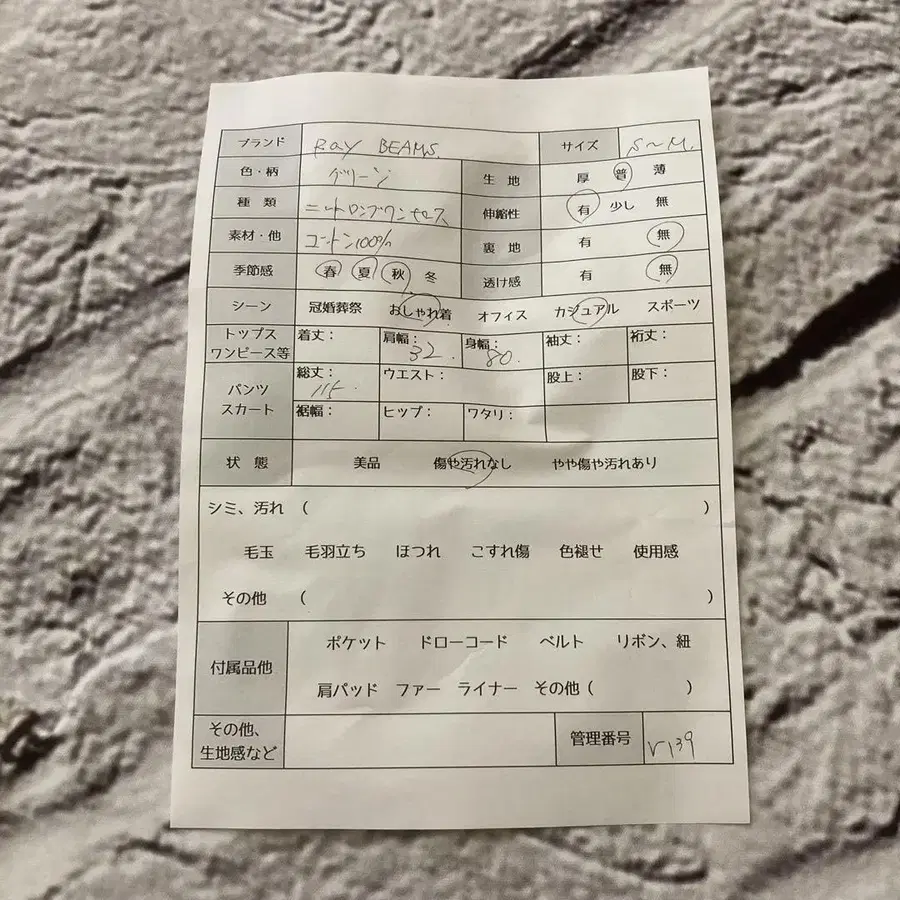 ブランド Ray BEAMS. サイズ S~M.
色・柄 グリーン 生地 厚 普 薄
種類 ニットロングワンピース 伸縮性 有 少し 無
素材・他 コットン100% 裏地 有 無
季節感 春 夏 秋 冬 透け感 有 無
シーン 冠婚葬祭 おしゃれ着 オフィス カジュアル スポーツ
トップス ワンピース等 着丈: 肩幅: 32. 身幅: 80. 袖丈: 裄丈:
パンツ スカート 総丈: 115. ウエスト: 股上: 股下:
裾幅: ヒップ: ワタリ:
状態 美品 傷や汚れなし やや傷や汚れあり
シミ、汚れ ( )
毛玉 毛羽立ち ほつれ こすれ傷 色褪せ 使用感
その他 ( )
付属品他 ポケット ドローコード ベルト リボン、紐
肩パッド ファー ライナー その他 ( )
その他、生地感など 管理番号 r139